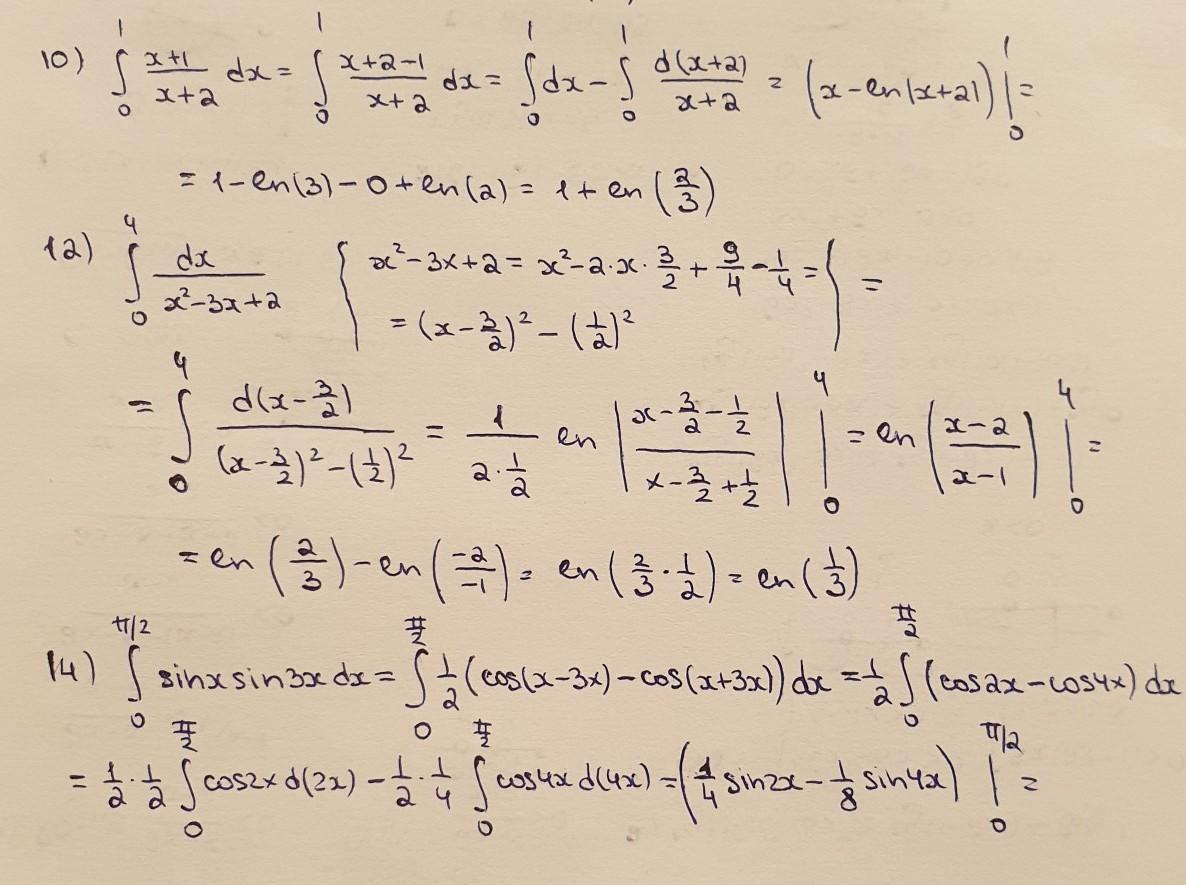 10) ∫₀¹ (x+1)/(x+2) dx = ∫₀¹ (x+2-1)/(x+2) dx = ∫₀¹ dx - ∫₀¹ d(x+2)/(x+2) = (x - ln|x+2|) |₀¹ =
= 1 - ln(3) - 0 + ln(2) = 1 + ln(2/3)
12) ∫₀⁴ dx/(x²-3x+2) { x²-3x+2 = x²-2·x·3/2 + 9/4 - 1/4 = { =
= (x-3/2)² - (1/2)²
= ∫₀⁴ d(x-3/2)/((x-3/2)²-(1/2)²) = 1/(2·1/2) ln |(x-3/2-1/2)/(x-3/2+1/2)| |₀⁴ = ln |(x-2)/(x-1)| |₀⁴ =
= ln(2/3) - ln(-2/-1) = ln(2/3 · 1/2) = ln(1/3)
14) ∫₀^(π/2) sinx sin3x dx = ∫₀^(π/2) 1/2 (cos(x-3x) - cos(x+3x)) dx = 1/2 ∫₀^(π/2) (cos2x - cos4x) dx
= 1/2 · 1/2 ∫₀^(π/2) cos2x d(2x) - 1/2 · 1/4 ∫₀^(π/2) cos4x d(4x) = (1/4 sin2x - 1/8 sin4x) |₀^(π/2) =